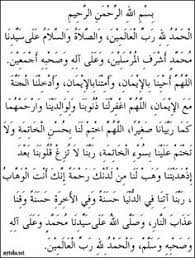 بِسْمِ اللهِ الرَّحْمٰنِ الرَّحِيْمِ
الْحَمْدُ لِلّٰهِ رَبِّ الْعَالَمِيْنَ، وَالصَّلَاةُ وَالسَّلَامُ عَلَى سَيِّدِنَا
مُحَمَّدٍ أَشْرَفِ الْمُرْسَلِيْنَ، وَعَلَى آلِهِ وَصَحْبِهِ أَجْمَعِيْنَ.
اَللّٰهُمَّ أَحْيِنَا بِالْإِيْمَانِ، وَأَمِتْنَا بِالْإِيْمَانِ، وَأَدْخِلْنَا الْجَنَّةَ
مَعَ الْإِيْمَانِ، اَللّٰهُمَّ اغْفِرْ لَنَا ذُنُوْبَنَا وَلِوَالِدِيْنَا وَارْحَمْهُمَا
كَمَا رَبَّيَانَا صَغِيْرًا، اَللّٰهُمَّ اخْتِمْ لَنَا بِحُسْنِ الْخَاتِمَةِ وَلَا
تَخْتِمْ عَلَيْنَا بِسُوْءِ الْخَاتِمَةِ، رَبَّنَا لَا تُزِغْ قُلُوْبَنَا بَعْدَ
إِذْ هَدَيْتَنَا وَهَبْ لَنَا مِنْ لَدُنْكَ رَحْمَةً إِنَّكَ أَنْتَ الْوَهَّابُ
، رَبَّنَا آتِنَا فِي الدُّنْيَا حَسَنَةً وَفِي الْآخِرَةِ حَسَنَةً وَقِنَا
عَذَابَ النَّارِ، وَصَلَّى اللهُ عَلَى سَيِّدِنَا مُحَمَّدٍ وَعَلَى آلِهِ
وَصَحْبِهِ وَسَلَّمَ، وَالْحَمْدُ لِلّٰهِ رَبِّ الْعَالَمِيْنَ.